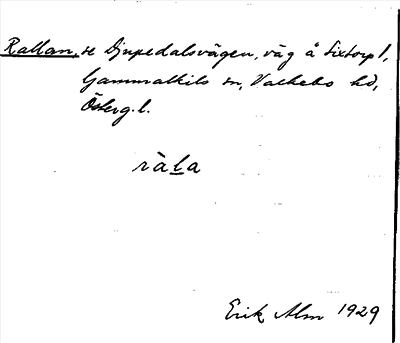 Rallan, se Djupedalsvägen, väg å Sixtorp 1,
Gammalkils sn, Valkebo hd,
Österg. l.
ràla
Erik Alm 1929